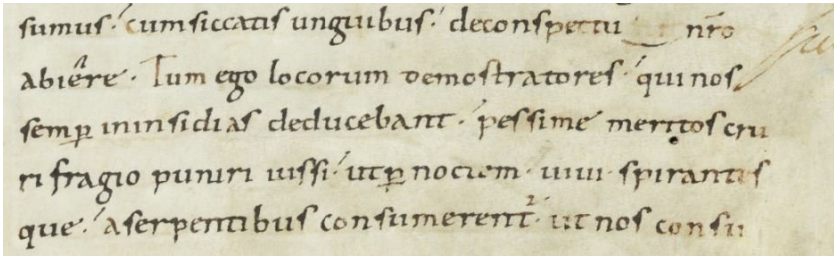 sumus · cum siccatis unguibus · deconspectu nr̅o
abiere · Tum ego locorum demostratores · qui nos
semꝑ ininsidias deducebant · pessime meritos cru
rifragio puniri iussi · utꝑ noctem · uiui · spirantes
que · aserpentibus consumerent᷑ · ut nos consu